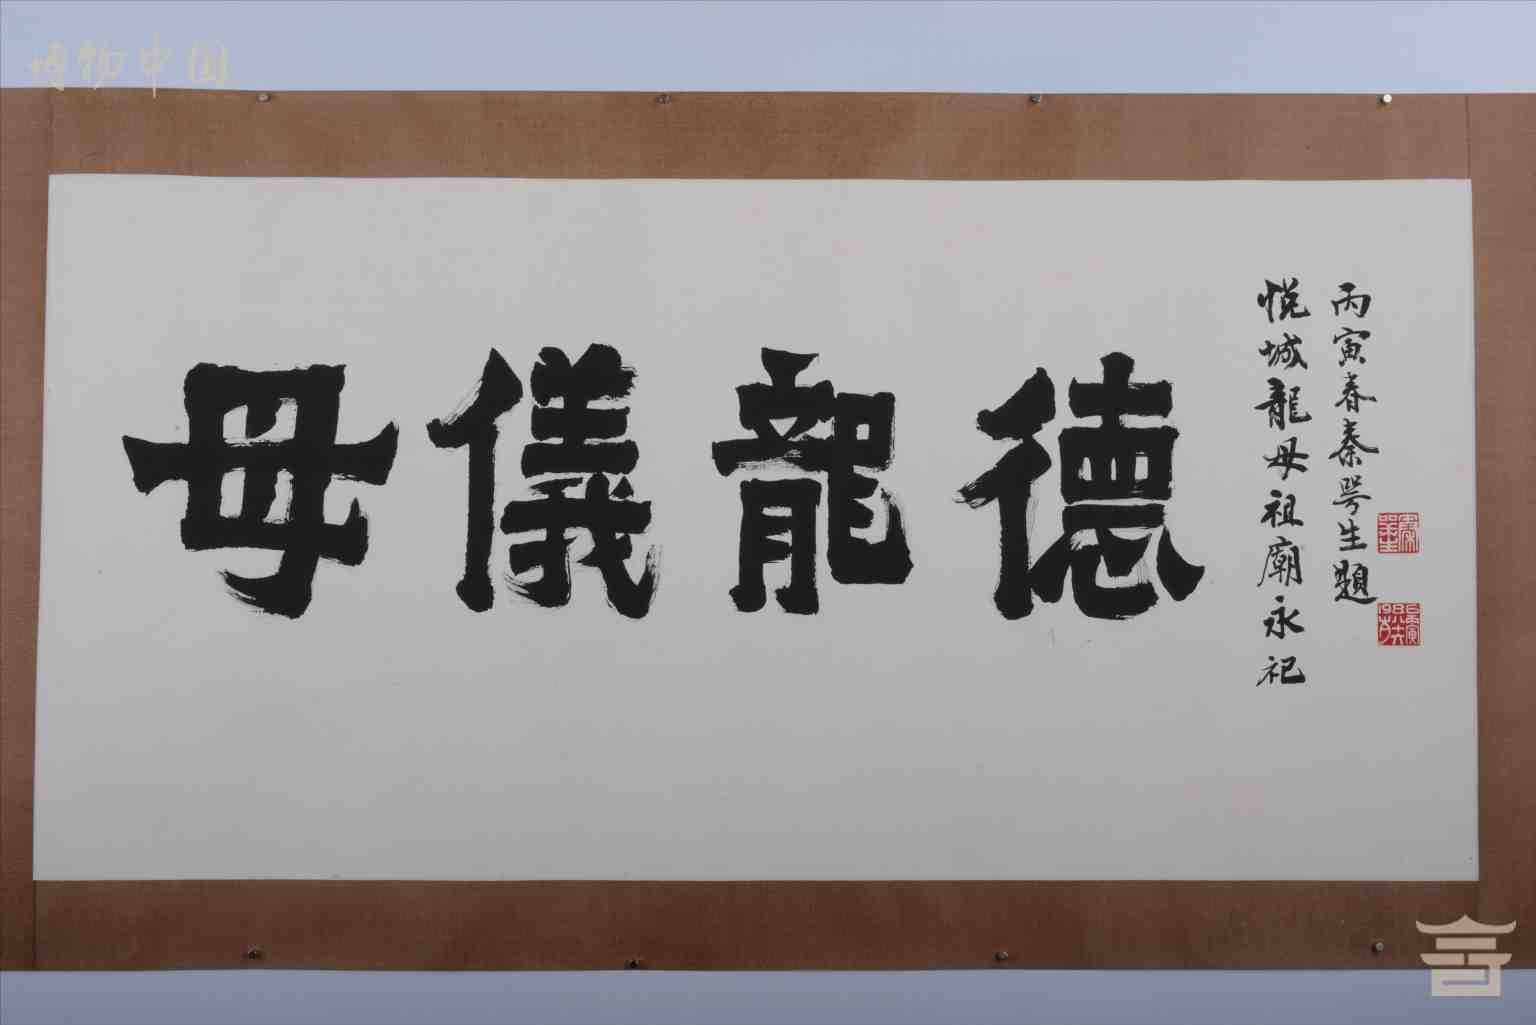 博物中国
母儀龍德
悅城龍母祖廟永祀
丙寅春秦咢生題
秦咢生